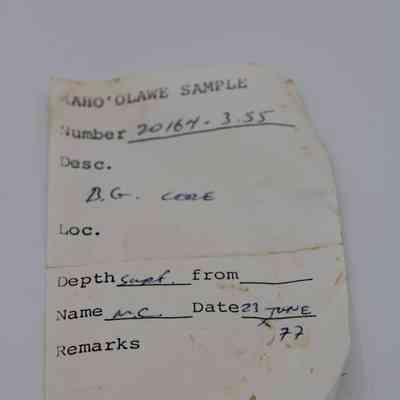 KAHO'OLAWE SAMPLE
Number 20164-3.55
Desc.
B.G. CORE
Loc.
Depth Surf. from
Name M.C. Date 21 JUNE
77
Remarks